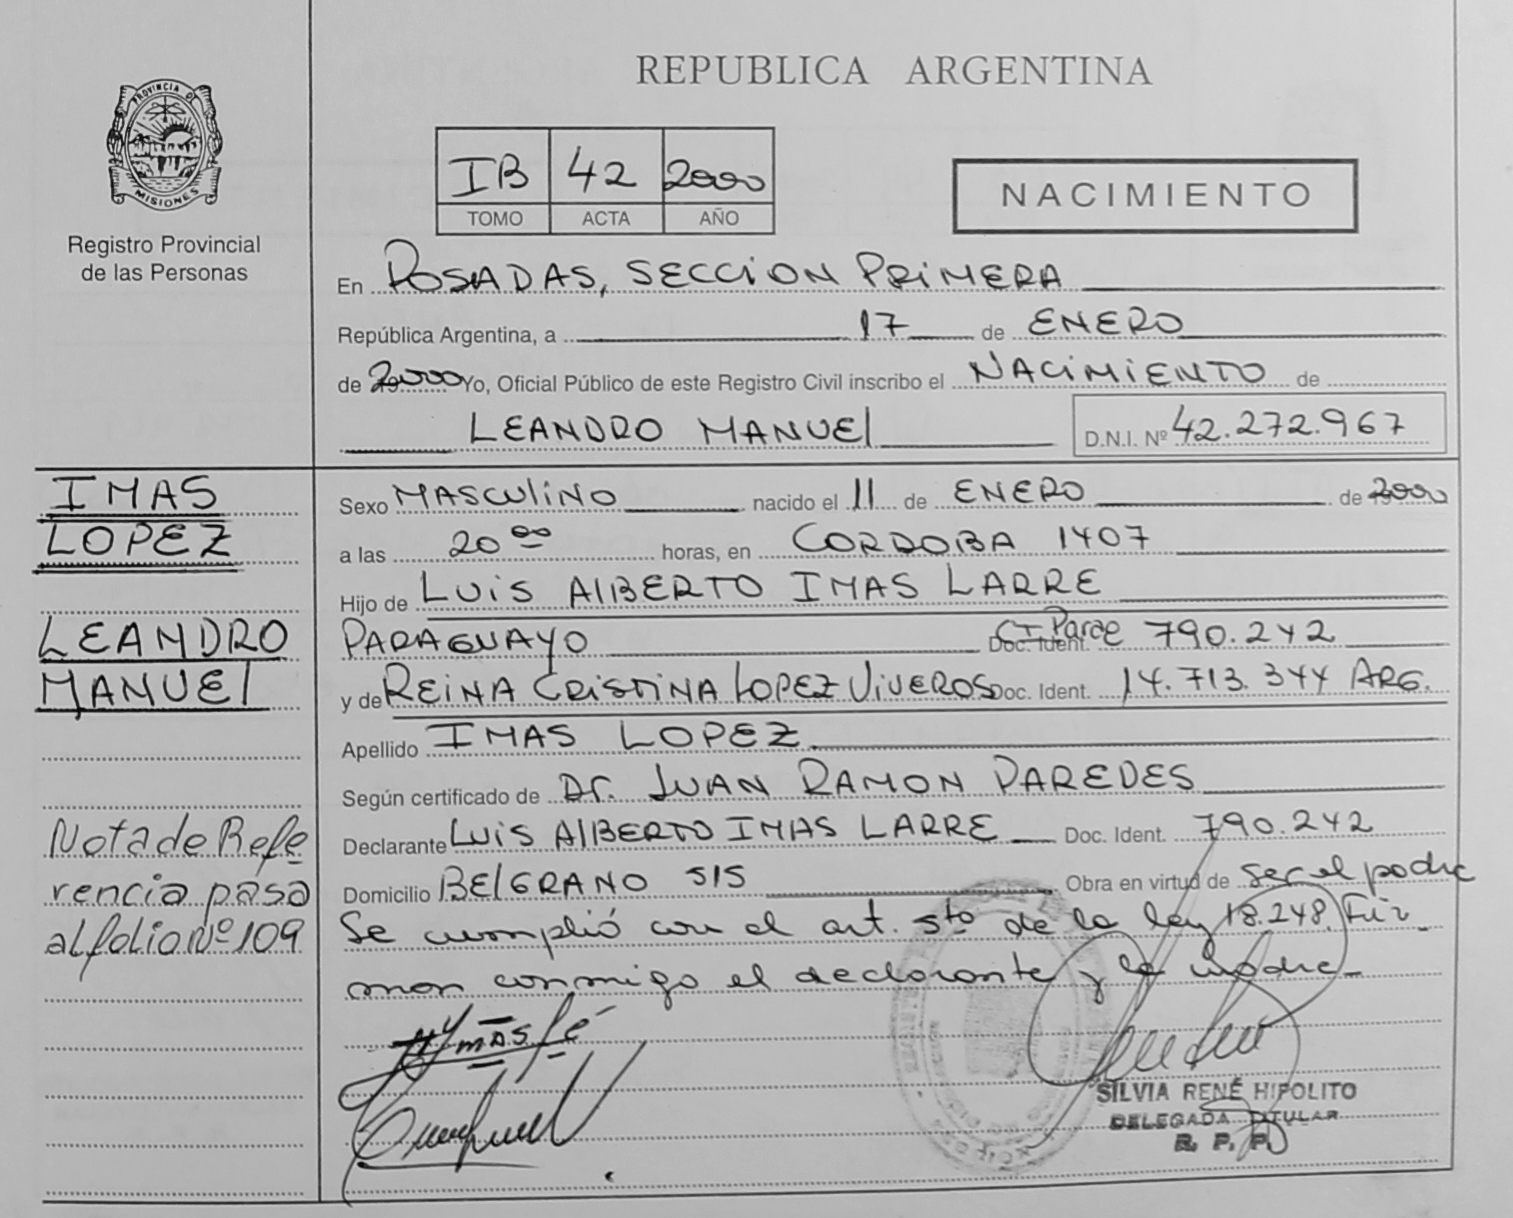 REPUBLICA ARGENTINA
PROVINCIA DE
MISIONES
Registro Provincial
de las Personas
IB 42 2000
TOMO ACTA AÑO
NACIMIENTO
En POSADAS, SECCION PRIMERA
República Argentina, a 17 de ENERO
de 2000 Yo, Oficial Público de este Registro Civil inscribo el NACIMIENTO de
LEANDRO MANUEL D.N.I. Nº 42.272.967
IMAS
LOPEZ
LEANDRO
MANUEL
Nota de Refe
rencia pasa
al folio Nº 109
Sexo MASCULINO nacido el 11 de ENERO de 2000
a las 20 00 horas, en CORDOBA 1407
Hijo de LUIS ALBERTO IMAS LARRE
PARAGUAYO Doc. Ident. CI Parag 790.242
y de REINA CRISTINA LOPEZ VIVEROS Doc. Ident. 14.713.344 ARG.
Apellido IMAS LOPEZ
Según certificado de Dr. JUAN RAMON PAREDES
Declarante LUIS ALBERTO IMAS LARRE Doc. Ident. 790.242
Domicilio BELGRANO 515 Obra en virtud de ser el padre
Se cumplió con el art. 5to de la ley 18.248. Fir
man conmigo el declarante y la madre
SILVIA RENÉ HIPOLITO
DELEGADA TITULAR
R. P. P.